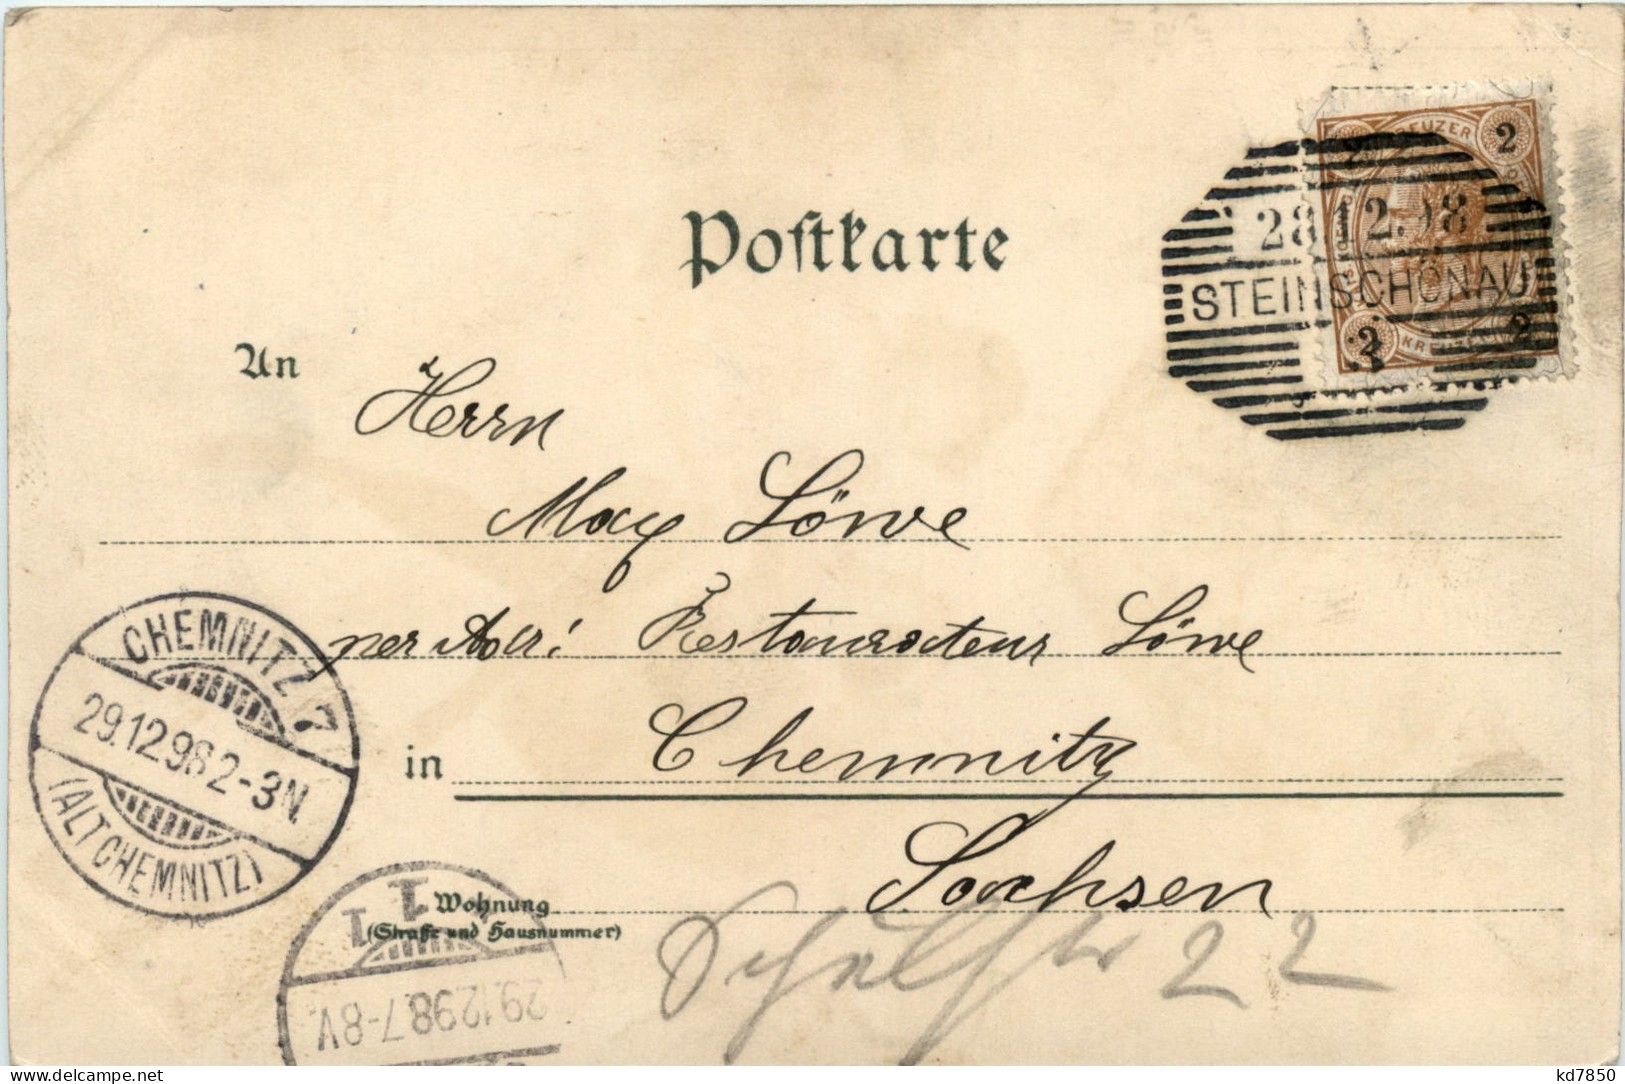 KREUZER 2
28.12.98
STEINSCHÖNAU
2 KREUZER 2
Postkarte
An
Herrn
Max Löwe
per Adr: Restaurateur Löwe
in Chemnitz
Sachsen
Wohnung
(Straße und Hausnummer)
Schulstr 22
CHEMNITZ 7
29.12.98 2-3N.
(ALTCHEMNITZ)
1 1
29.12.98.7-8V.
www.delcampe.net
kd7850